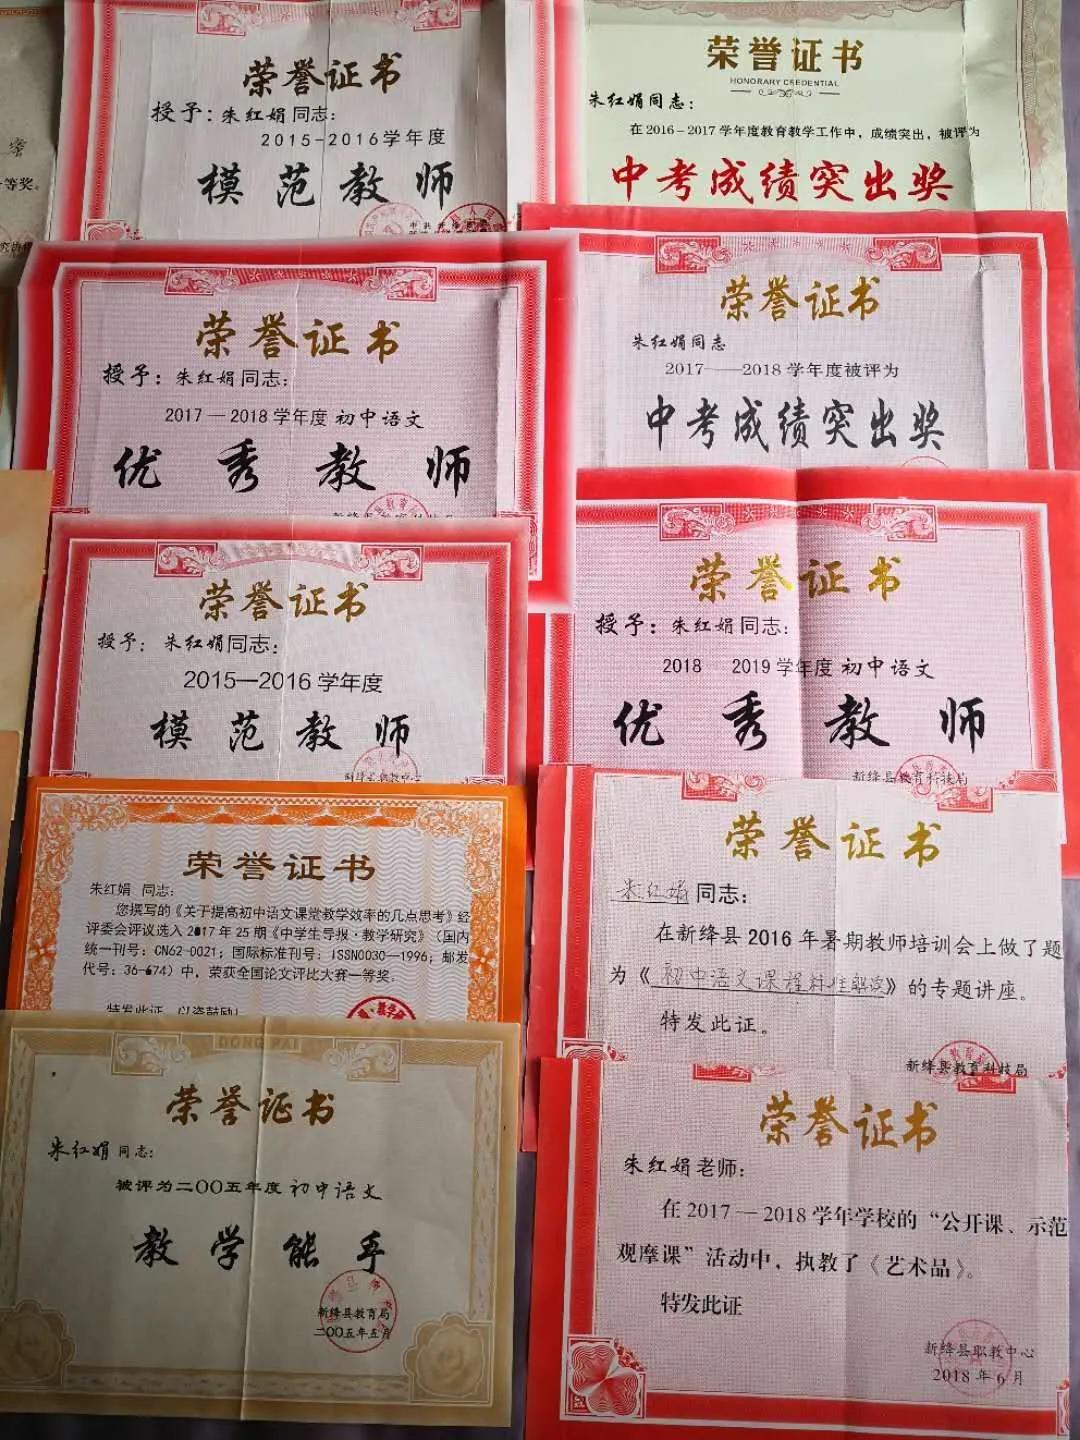 等奖。
荣誉证书
授予：朱红娟同志：
2015-2016学年度
模范教师
荣誉证书
HONORARY CREDENTIAL
朱红娟同志：
在2016-2017学年度教育教学工作中，成绩突出，被评为
中考成绩突出奖
荣誉证书
授予：朱红娟同志：
2017—2018学年度初中语文
优秀教师
荣誉证书
朱红娟同志
2017——2018学年度被评为
中考成绩突出奖
荣誉证书
授予：朱红娟同志：
2015—2016学年度
模范教师
新绛县职教中心
荣誉证书
授予：朱红娟同志：
2018 2019学年度初中语文
优秀教师
新绛县教育科技局
荣誉证书
朱红娟 同志：
您撰写的《关于提高初中语文课堂教学效率的几点思考》经
评委会评议选入2017年25期《中学生导报·教学研究》（国内
统一刊号：CN62-0021；国际标准刊号：ISSN0030-1996；邮发
代号：36-674）中，荣获全国论文评比大赛一等奖。
特发此证，以资鼓励！
荣誉证书
朱红娟同志：
在新绛县2016年暑期教师培训会上做了题
为《初中语文课程标准解读》的专题讲座。
特发此证。
新绛县教育科技局
DONG PAI
荣誉证书
朱红娟同志：
被评为二〇〇五年度初中语文
教学能手
新绛县教育局
二〇〇五年五月
荣誉证书
朱红娟老师：
在2017—2018学年学校的“公开课、示范
观摩课”活动中，执教了《艺术品》。
特发此证
新绛县职教中心
2018年6月